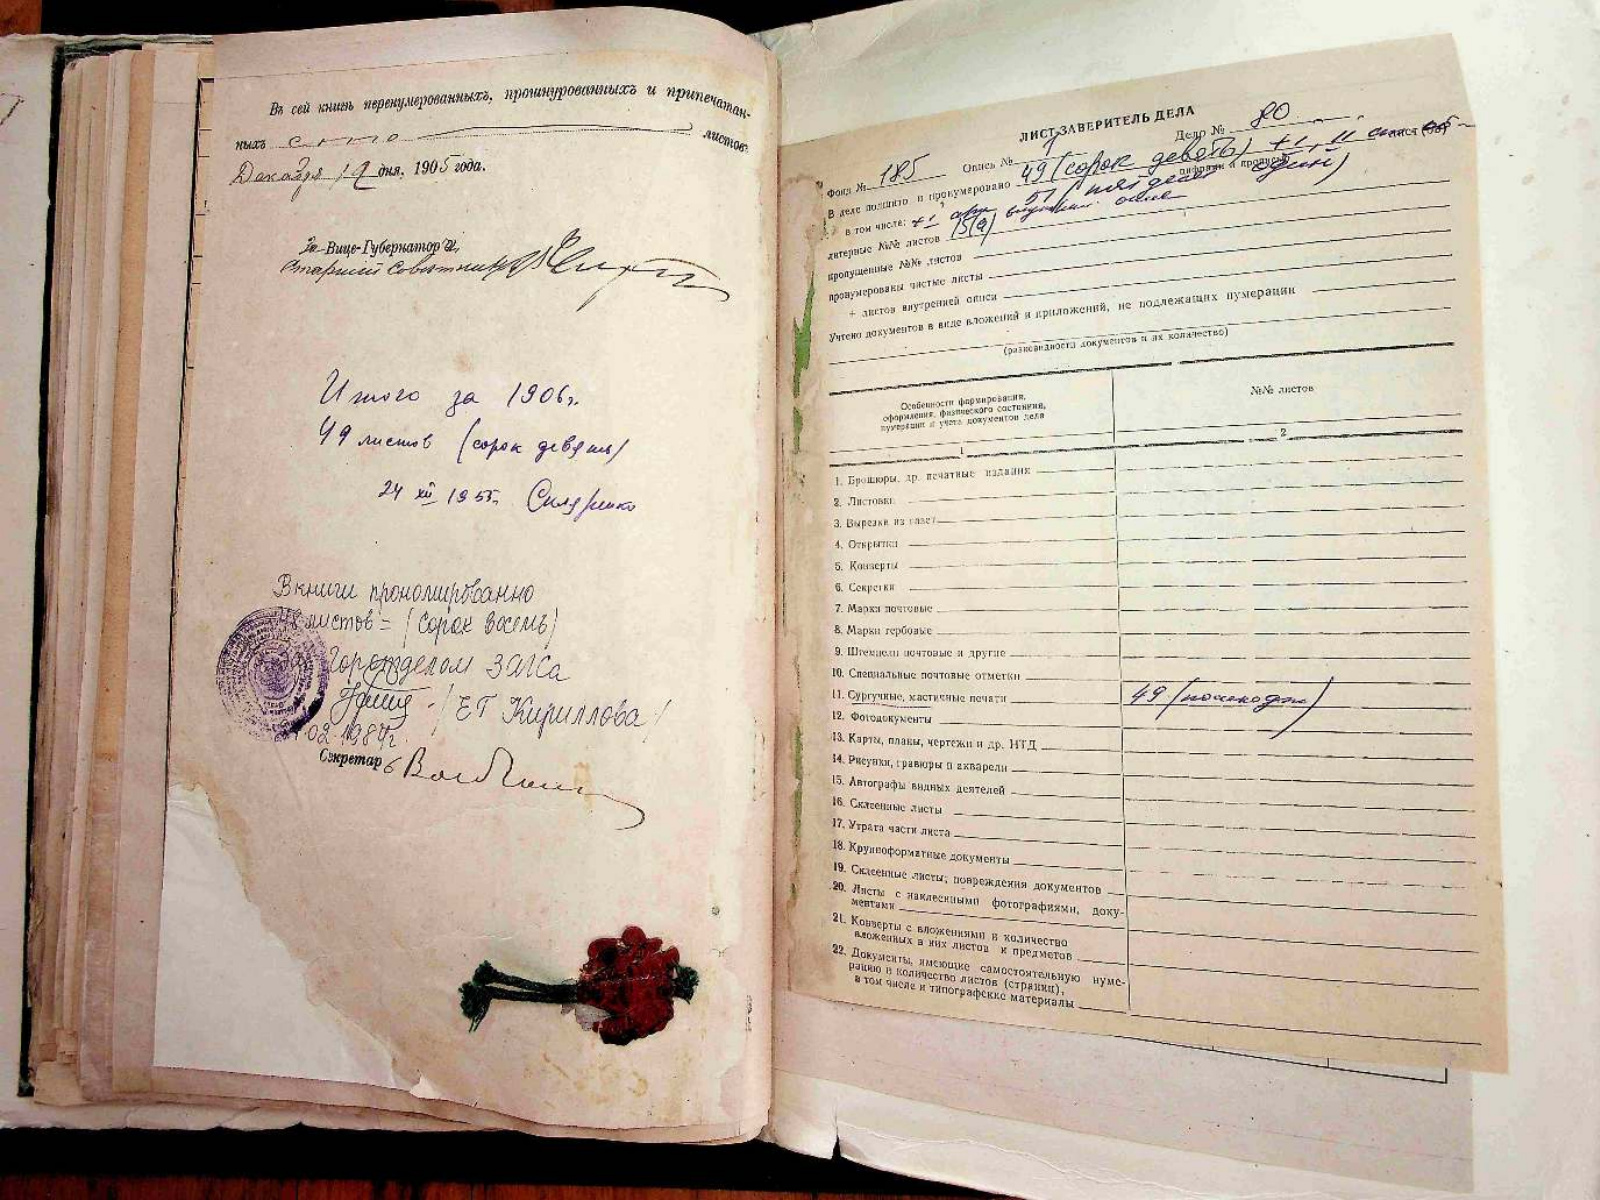 Въ сей книгѣ перенумерованныхъ, прошнурованныхъ и припечатан-
ныхъ сто листовъ
Декабря 12 дня, 1905 года.
За Вице-Губернатора,
Старшій Совѣтникъ
Итого за 1906 г.
49 листов (сорок девять)
24 XII 1955 г.
В книги прономированно
48 листов = (сорок восемь)
Горотделом ЗАГСа
/ Е Г Кириллова /
02 1984 г.
Секретарь
ЛИСТ-ЗАВЕРИТЕЛЬ ДЕЛА
Фонд № 185 Опись № 1 Дело № 80
В деле подшито и пронумеровано 49 (сорок девять) +1, лист (ов)
цифрами и прописью
51 (пятьдесят один)
в том числе: +1 внутренняя опись
литерные №№ листов 15(а)
пропущенные №№ листов
пронумерованы чистые листы
+ листов внутренней описи
Учтено документов в виде вложений и приложений, не подлежащих нумерации
(разновидности документов и их количество)
Особенности формирования,
оформления, физического состояния,
нумерации и учета документов дела
№№ листов
1
2
1. Брошюры, др. печатные издания
2. Листовки
3. Вырезки из газет
4. Открытки
5. Конверты
6. Секретки
7. Марки почтовые
8. Марки гербовые
9. Штемпели почтовые и другие
10. Специальные почтовые отметки
11. Сургучные, мастичные печати 49
12. Фотодокументы
13. Карты, планы, чертежи и др. НТД
14. Рисунки, гравюры и акварели
15. Автографы видных деятелей
16. Склеенные листы
17. Утрата части листа
18. Крупноформатные документы
19. Склеенные листы; повреждения документов
20. Листы с наклеенными фотографиями, доку-
ментами
21. Конверты с вложениями и количество
вложенных в них листов и предметов
22. Документы, имеющие самостоятельную нуме-
рацию и количество листов (страниц),
в том числе и типографские материалы